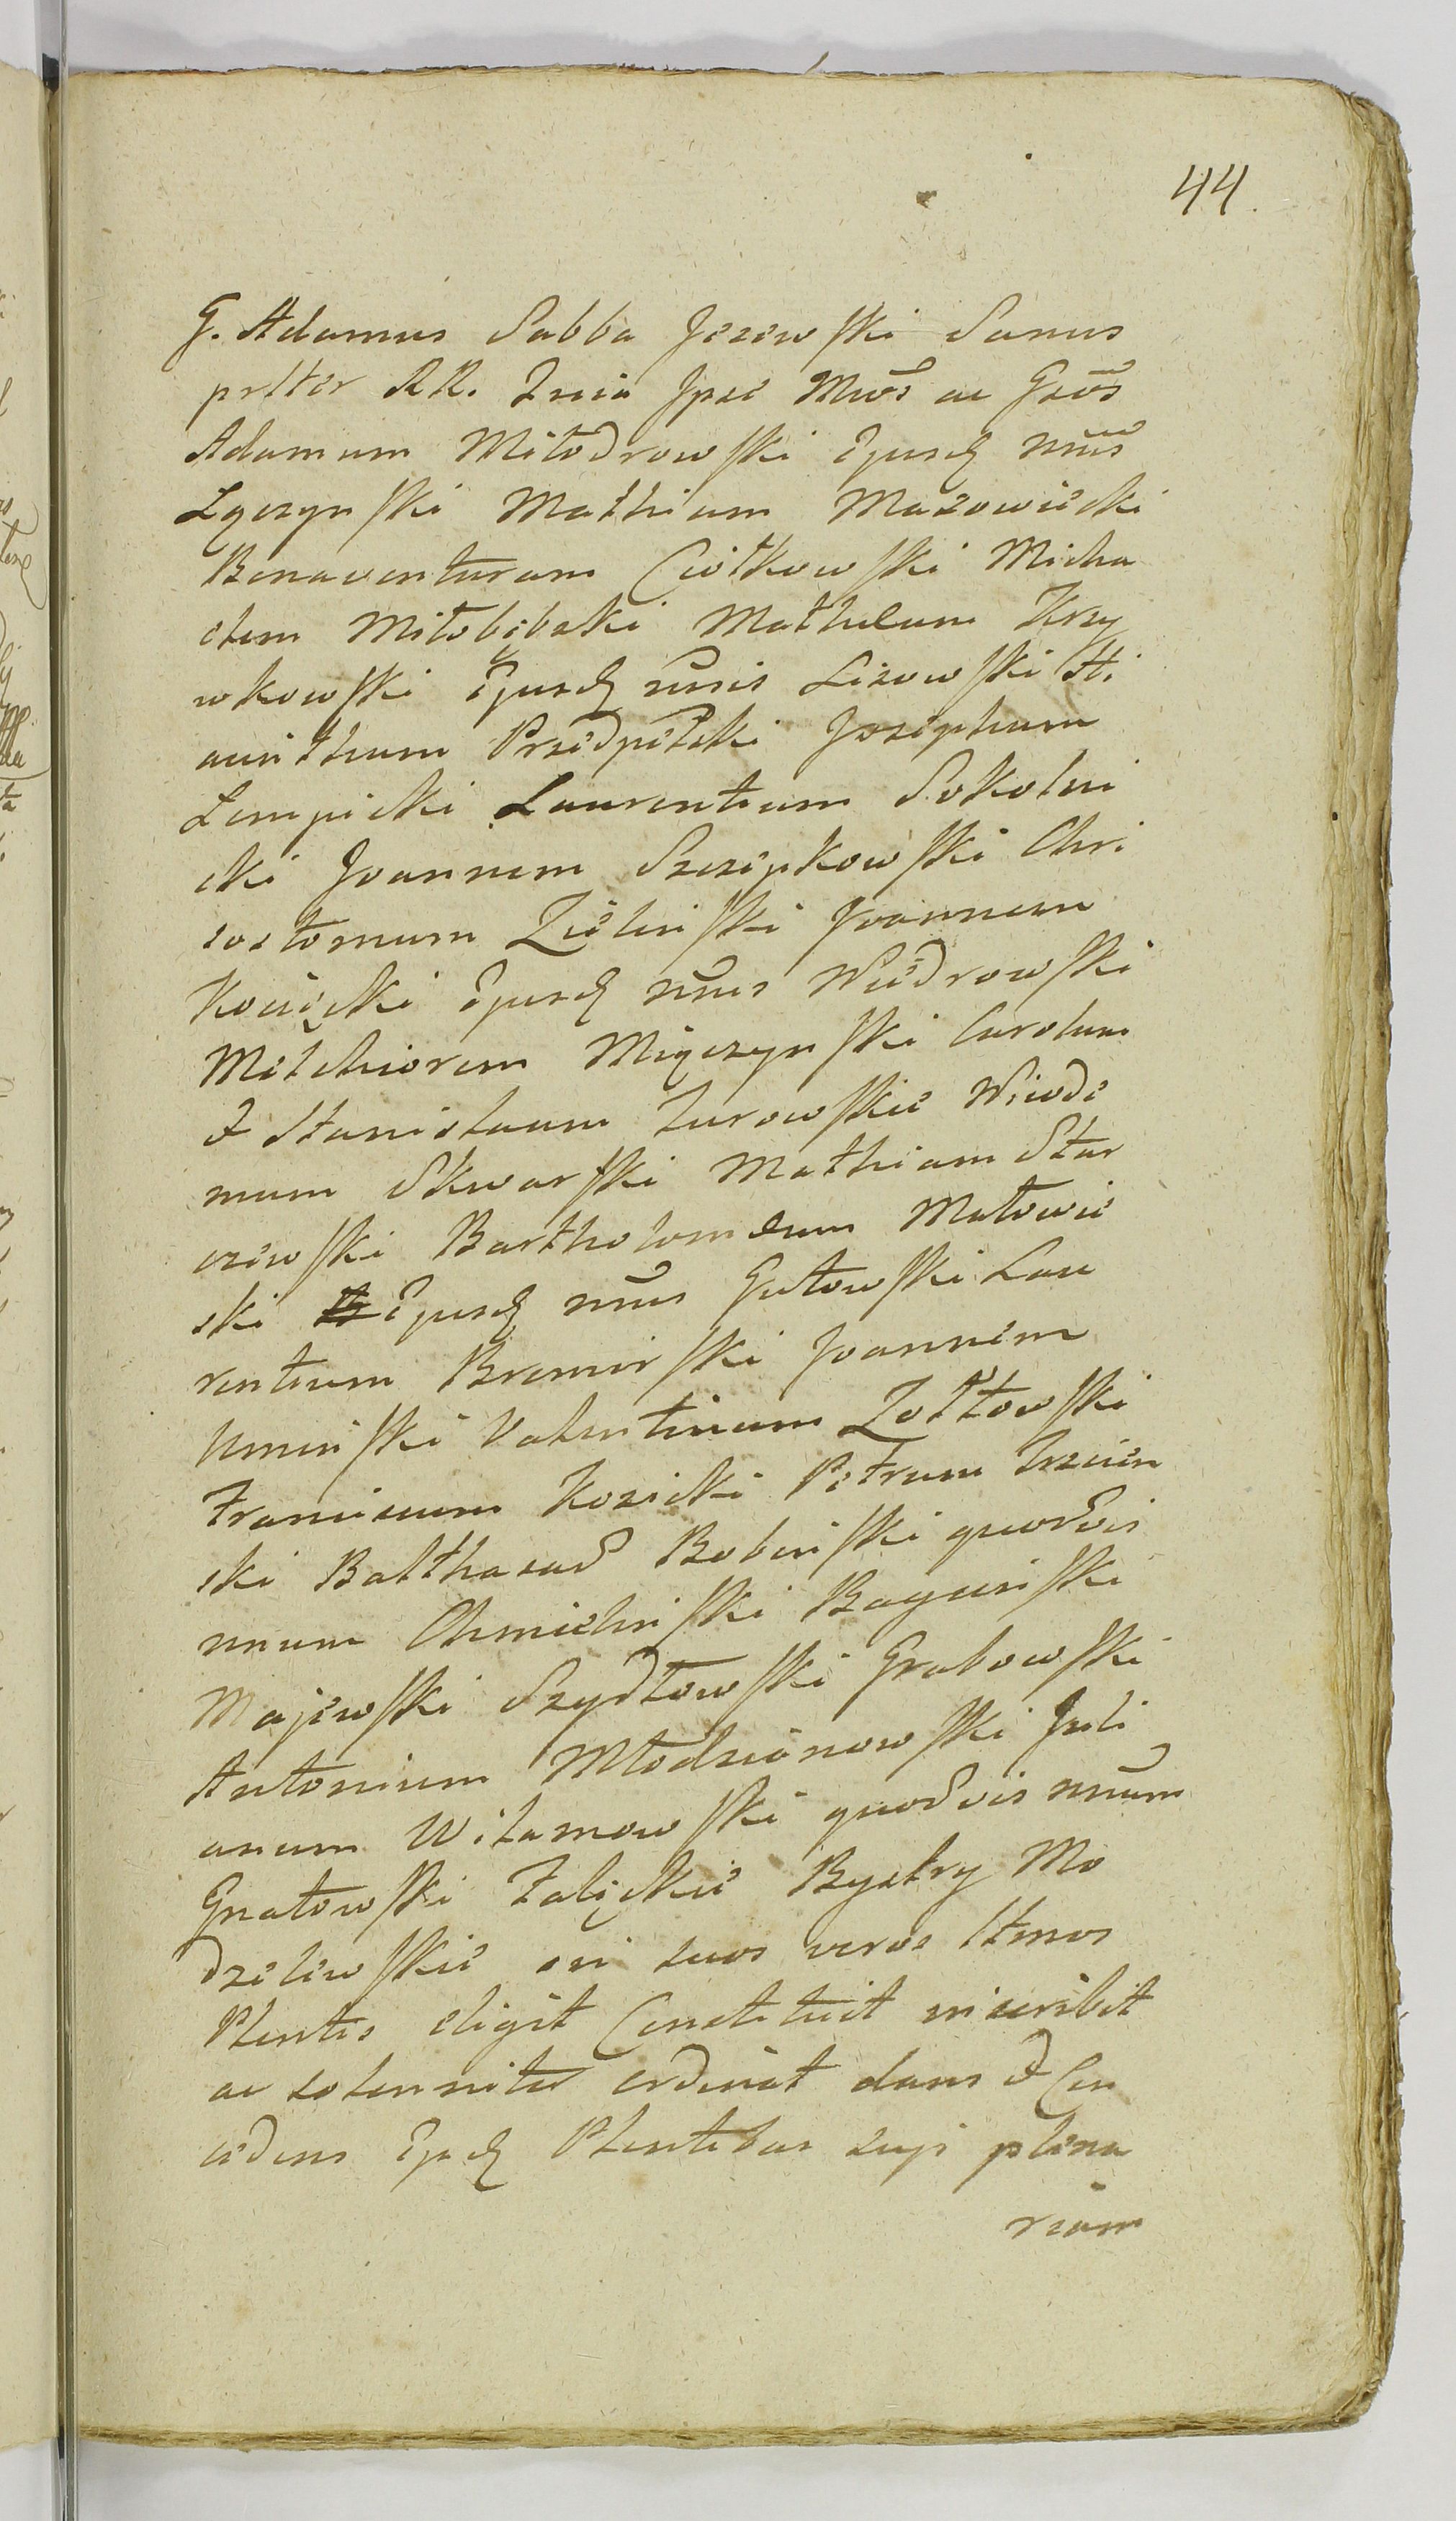 44.
G. Adamus Sabba Jezewski Sanus
prltter RR. Inia Jpse Mwos ac Gsos
Adamum Miłodrowski Ejusdq nnis
Lączynski Mathiam Mazowiecki
Bonaventuram Ciołkowski Micha
elem Miłobędzki Mathæum Krzy
wkowski Ejusdq nnis Lisowski Hi
acinthum Przedpełski Josephum
Lempicki Laurentium Sokolni
cki Joannem Szczepkowski Chri
sostomum Zielinski Joannem
Kocięcki Ejusdq nnis Wiedrowski
Melchiorem Miączynski Carolum
& Stanislaum Zurowskie Nicode
mum Skwarski Mathiam Star
czewski Bartholomeum Małowie
ski Ejusdq nnis Gutowski Lau
rentium Bremirski Joannem
Uminski Valentinum Zołtowski
Franciscum Kozicki Petrum Trzcin
ski Balthasad Bobinski quodvis
nnum Chmielinski Baginski
Majewski Szydłowski Grabowski
Antonium Młodzianowski Juli
anum Wilamowski quodvis nnum
Gnatowski Falęckie Bystry Mo
dzelewskie oni suos veros ltmos
Plentes eligit Constituit inscribit
ac solenniter ordinat dans & Con
cedens Ejsdq Plentibus suis plena
riam